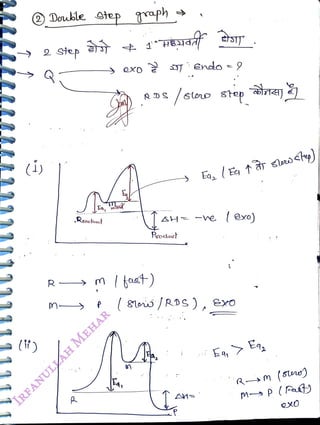 ② Double step graph →
→ 2 step होंगे & 1 मध्यवर्ती होगा.
→ Q → exo है या endo = ?
RDS / slow step कौनसा है
(i)
Ea₂ (Ea ↑ तो slow step)
E₂
Ea₁
Reactant
ΔH = -ve (exo)
Product
R → M (fast)
M → P (slow/RDS), exo
(ii)
Ea₁ > Ea₂
Ea₂
M
Ea₁
R → M (slow)
M → P (Fast)
exo
R
ΔH=
P
IRFANULLAH MEHAR